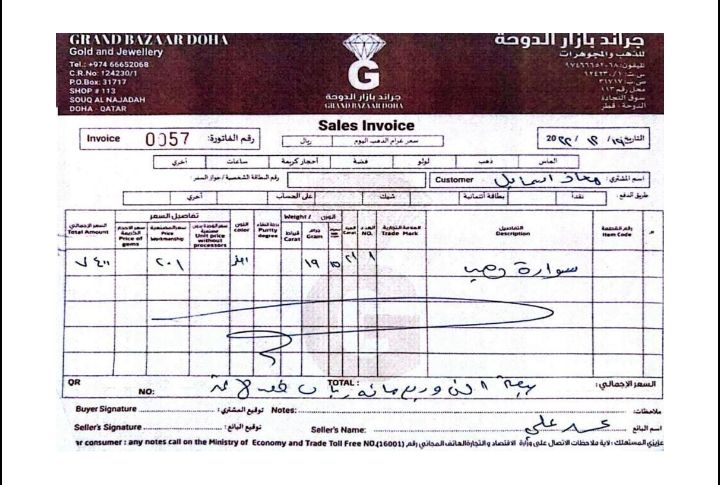 GRAND BAZAAR DOHA
Gold and Jewellery
Tel.: +974 66652068
C.R.No: 124230/1
P.O.Box: 31717
SHOP # 113
SOUQ AL NAJADAH
DOHA - QATAR
G
جراند بازار الدوحة
GRAND BAZAAR DOHA
جراند بازار الدوحة
للذهب والمجوهرات
تليفون: ٩٧٤٦٦٦٥٢٠٦٨+
س.ت: ١٢٤٢٣٠/١
ص.ب: ٣١٧١٧
محل رقم ١١٣
سوق النجادة
الدوحة - قطر
Sales Invoice
Invoice 0057 رقم الفاتورة:
ريال سعر غرام الذهب اليوم
التاريخ 20
الماس ذهب لولو فضة أحجار كريمة ساعات أخرى
اسم المشتري: معاذ اسماعيل Customer رقم البطاقة الشخصية / جواز السفر:
طريق الدفع: نقدا بطاقة ائتمانية شيك على الحساب أخرى
م رقم القطعة Item Code التفاصيل Description العلامة التجارية Trade Mark العدد NO. العيار Carat الوزن Weight / جرام Gram قيراط Carat درجة النقاء Purity degree اللون color تفاصيل السعر Unit price without processors Price Workmanship Price of gems السعر الإجمالي Total Amount
سوارة ذهب ١ ٢١ ١٩ ٢٠١ ٧٤٠٠
QR NO: TOTAL : السعر الإجمالي:
Buyer Signature توقيع المشتري: Notes: ملاحظات:
Seller's Signature توقيع البائع: Seller's Name: علي اسم البائع
ar consumer : any notes call on the Ministry of Economy and Trade Toll Free NO.(16001) عزيزي المستهلك: لاية ملاحظات الاتصال على وزارة الاقتصاد والتجارة الهاتف المجاني رقم